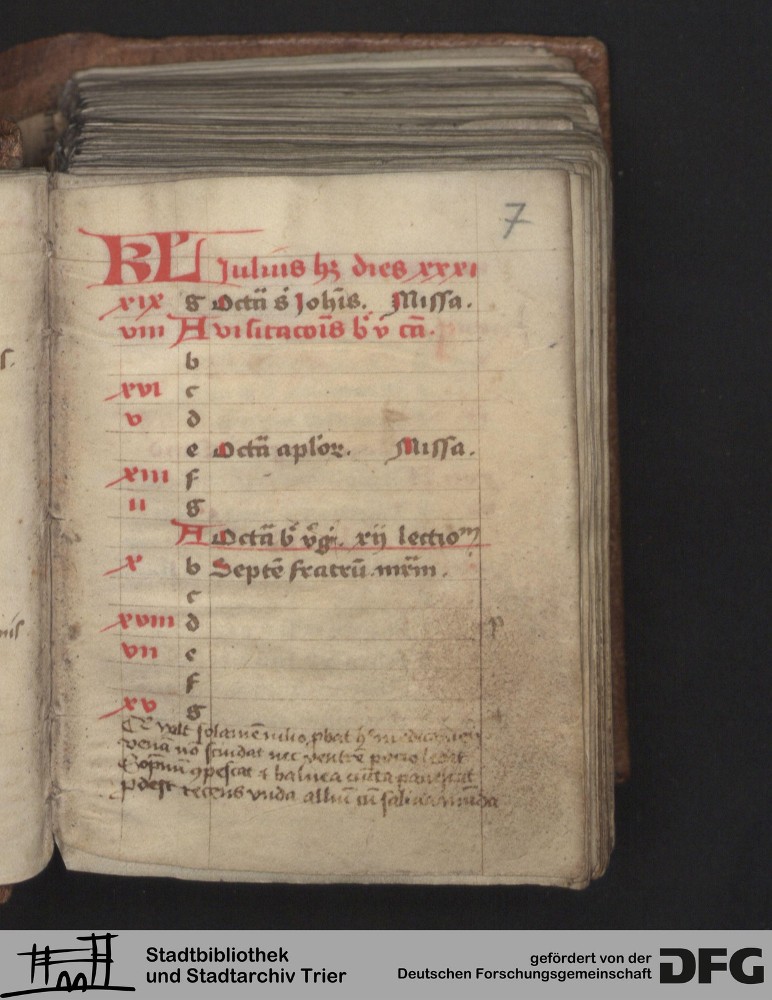 7
KL Julius hꝫ dies xxxi
xix g Octa᷑ s̄ Joh̄is. Missa.
viii A visitacōis b̄ v̄ ca᷑.
b
xvi c
v d
e Octa᷑ aplōꝝ. Missa.
xiii f
ii g
A Octa᷑ b̄ v̄gi. xij lectiom̄
x b Septē fratrū mr̄m.
c
xviii d
vii e
f
xv g
volt solamen iulio, p̄bat
venā nō scindat nec ventrē
Sopnū ꝯpescat ⁊ balnea cūcta pauescat
ꝓdest recens vnda alliū cū
Stadtbibliothek
und Stadtarchiv Trier
gefördert von der
Deutschen Forschungsgemeinschaft
DFG